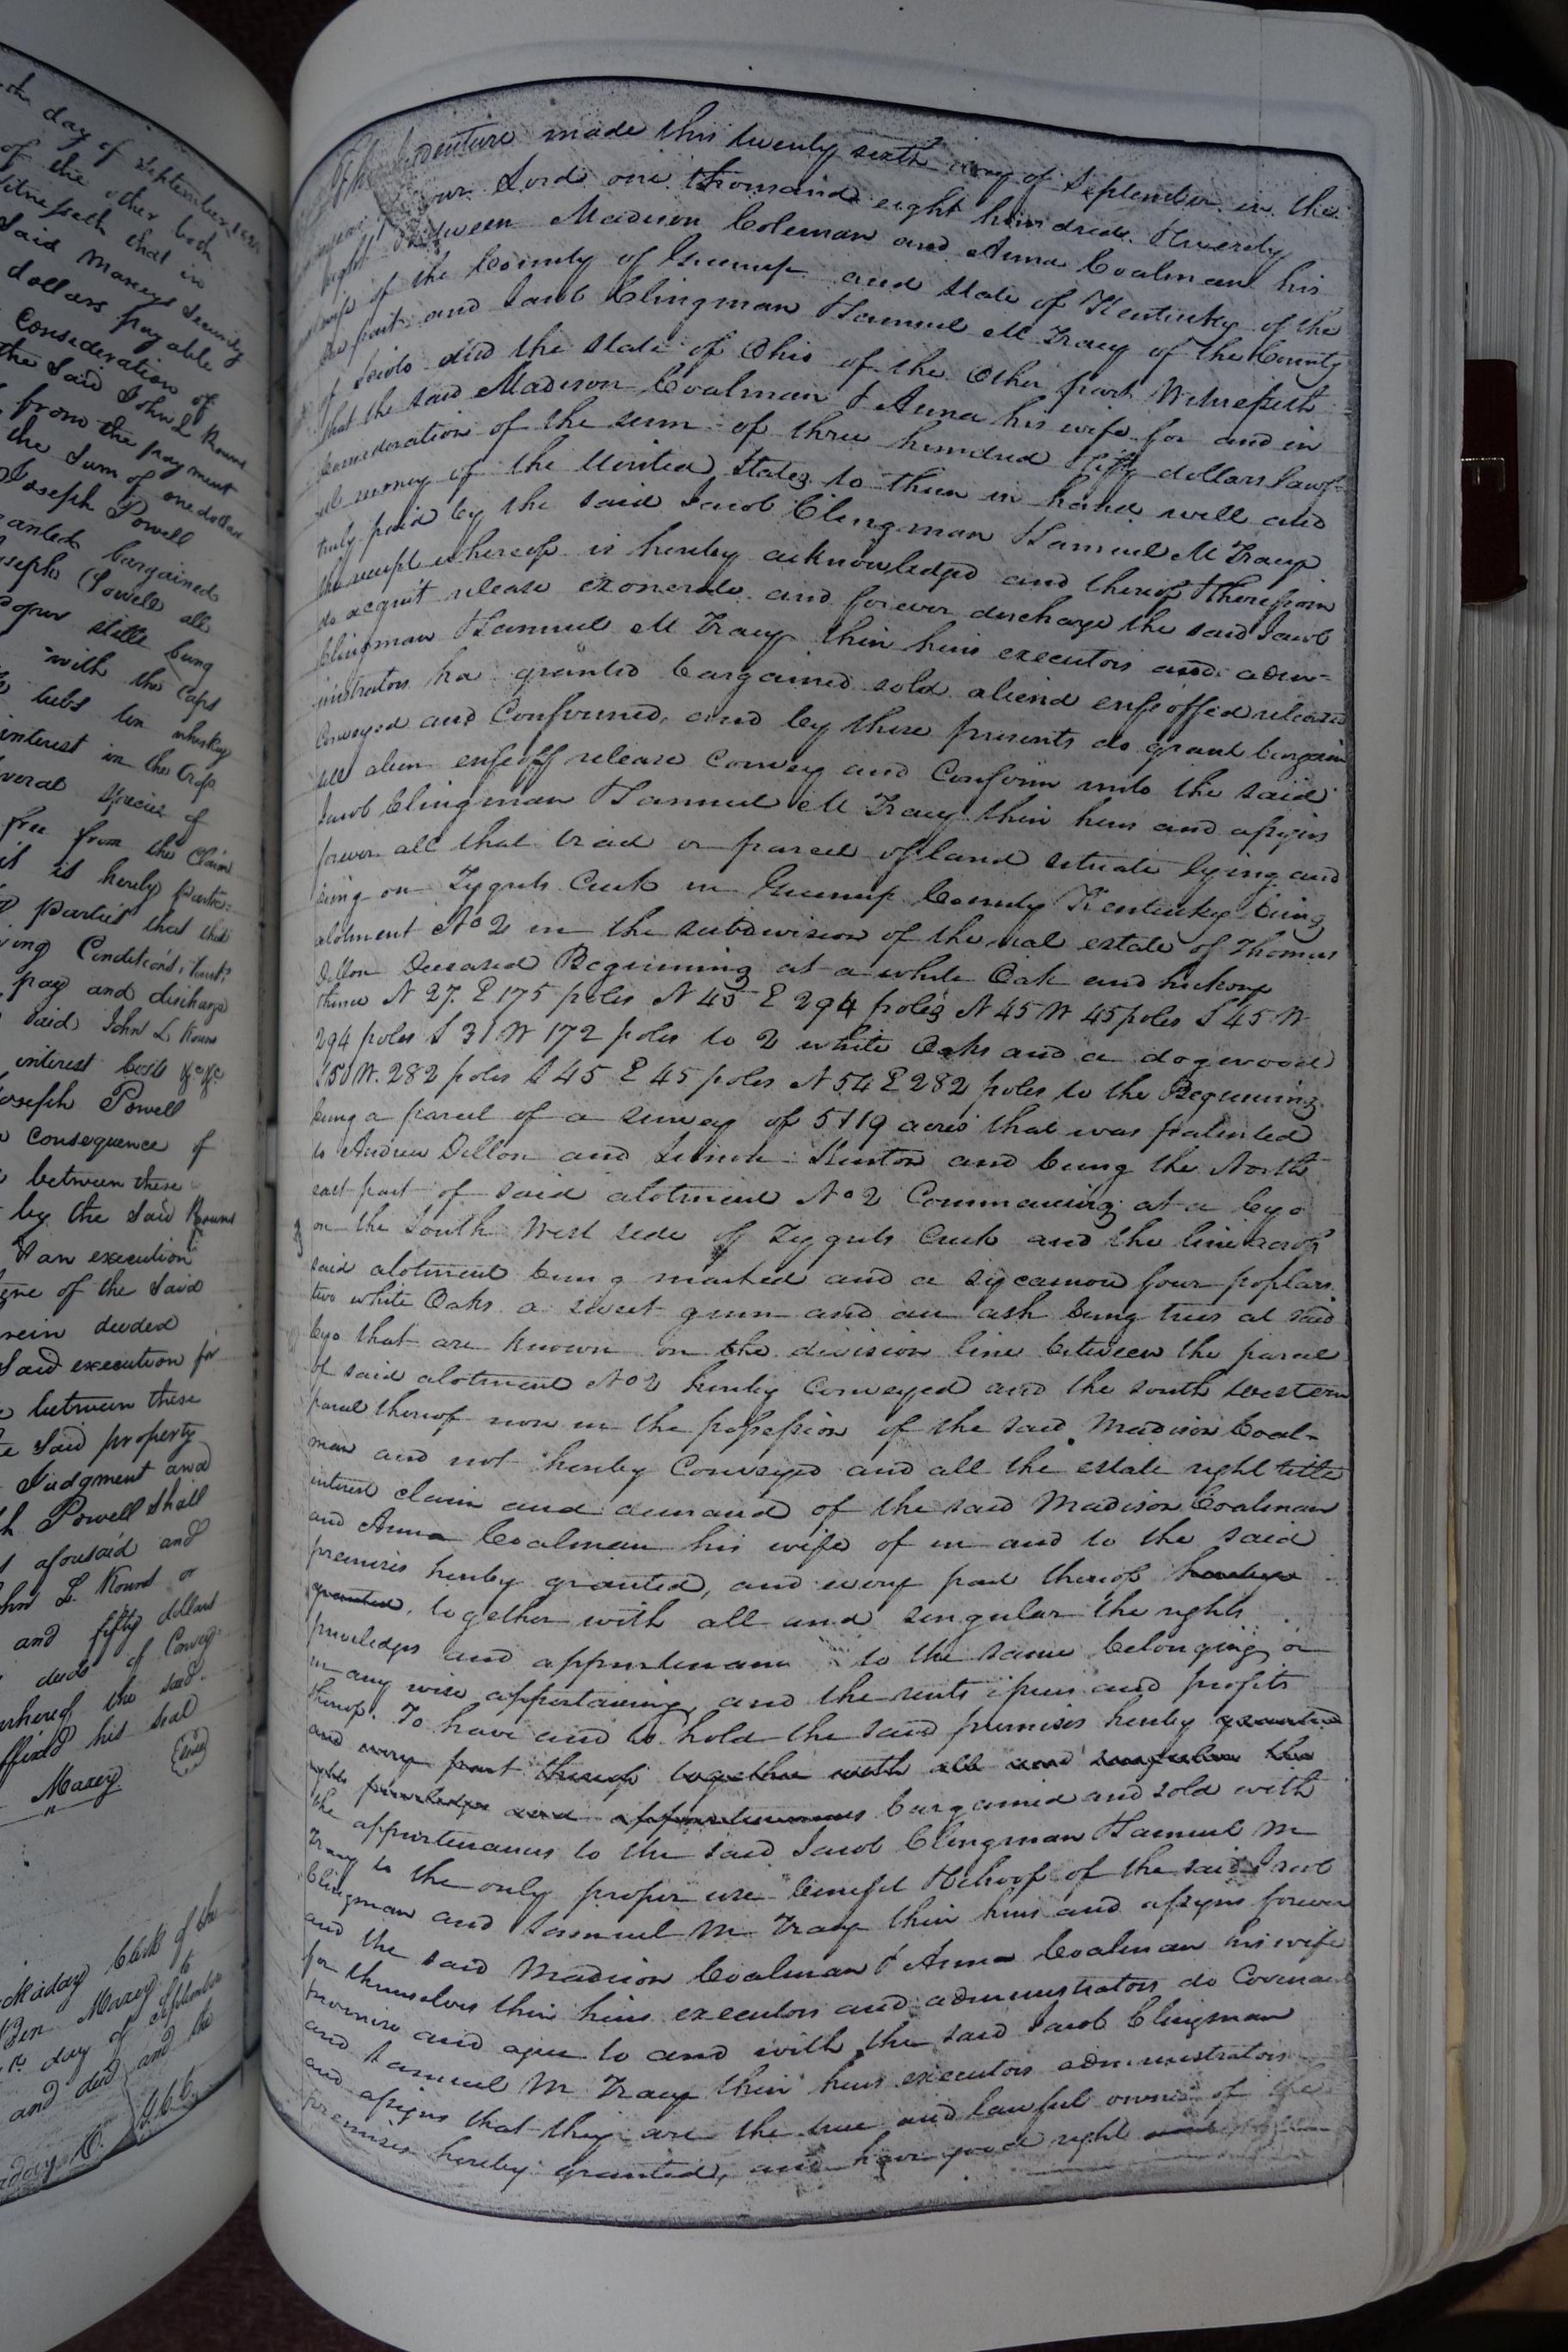 day of September
of the other both
Witnesseth that in
Said Maxeys Security
dollars payable
Consideration of
the Said John L Round
from the payment
the Sum of one dollar
Joseph Powell
granted bargained
Joseph Powell all
still being
with the Caps
tubs ten whiskey
interest in the Crop
several species of
free from the Claim
it is hereby
parties that the
Conditions,
pay and discharge
Said John L Round
interest Costs &c &c
Joseph Powell
Consequence of
between these
by the Said Round
an execution
of the Said
deeded
Said execution for
between these
Said property
Judgment and
Powell Shall
aforesaid and
John L. Round or
and fifty dollars
deeds of Convey
whereof the said
affixed his seal
Maxey
Clerk of the
Ben Maxey to
day of September
and deed and the
This Indenture made this twenty sixth day of September in the
year our Lord one thousand eight hundred twenty
eight Between Madison Coleman and Anna Coalman his
wife of the County of Greenup and State of Kentucky of the
one part and Jacob Clingman & Samuel M Tracy of the County
of Scioto and the State of Ohio of the Other part Witnesseth
that the said Madison Coalman & Anna his wife for and in
Consideration of the sum of three hundred fifty dollars law-
ful money of the United States to them in hand well and
truly paid by the said Jacob Clingman & Samuel M Tracy
the receipt whereof is hereby acknowledged and thereof & therefrom
do acquit release exonerate and forever discharge the said Jacob
Clingman & Samuel M Tracy their heirs executors and admi-
nistrators ha granted bargained sold aliend enfeoffed released
Conveyed and Confirmed, and by these presents do grant bargain
sell alien enfeoff release Convey and Confirm unto the said
Jacob Clingman & Samuel M Tracy their heirs and assigns
forever all that tract or parcel of land situate lying and
being on Tygerts Creek in Greenup County Kentucky being
alotment No 2 in the subdivision of the real estate of Thomas
Dillon Deceased Beginning at a white Oak and hickory
thence N 27. E 175 poles N 45 E 294 poles N 45 W 45 poles S 45 W
294 poles S 31 W 172 poles to 2 white Oaks and a dogwood
S 50 W. 282 poles S 45 E 45 poles N 54 E 282 poles to the Beginning
being a parcel of a survey of 5119 acres that was patented
to Andrew Dillon and Simon Kenton and being the North
east part of said alotment No 2 Commencing at a byo
on the South West side of Tygerts Creek and the line across
said alotment being marked and a sycamore four poplars
two white Oaks a sweet gum and an ash being trees at said
byo that are known on the division line between the parcel
of said alotment No 2 hereby Conveyed and the south western
parcel thereof now in the possession of the said Madison Coal-
man and not hereby Conveyed and all the estate right title
interest claim and demand of the said Madison Coalman
and Anna Coalman his wife of in and to the said
premises hereby granted, and every part thereof hereby
granted, together with all and singular the rights
priveledges and appurtenanc to the same belonging or
in any wise appertaining, and the rents issues and profits
thereof. To have and to hold the said premises hereby granted
and every part thereof together with all and singular the
rights priveledges and appurtenances bargained and sold with
the appurtenances to the said Jacob Clingman & Samuel M
Tracy to the only proper use benefit & behoof of the said Jacob
Clingman and Samuel M Tracy their heirs and assigns forever
and the said Madison Coalman & Anna Coalman his wife
for themselves their heirs executors and administrators do Covenant
promise and agree to and with the said Jacob Clingman
and Samuel M Tracy their heirs executors administrators
and assigns that they are the true and lawful owners of the
premises hereby granted, and have good right